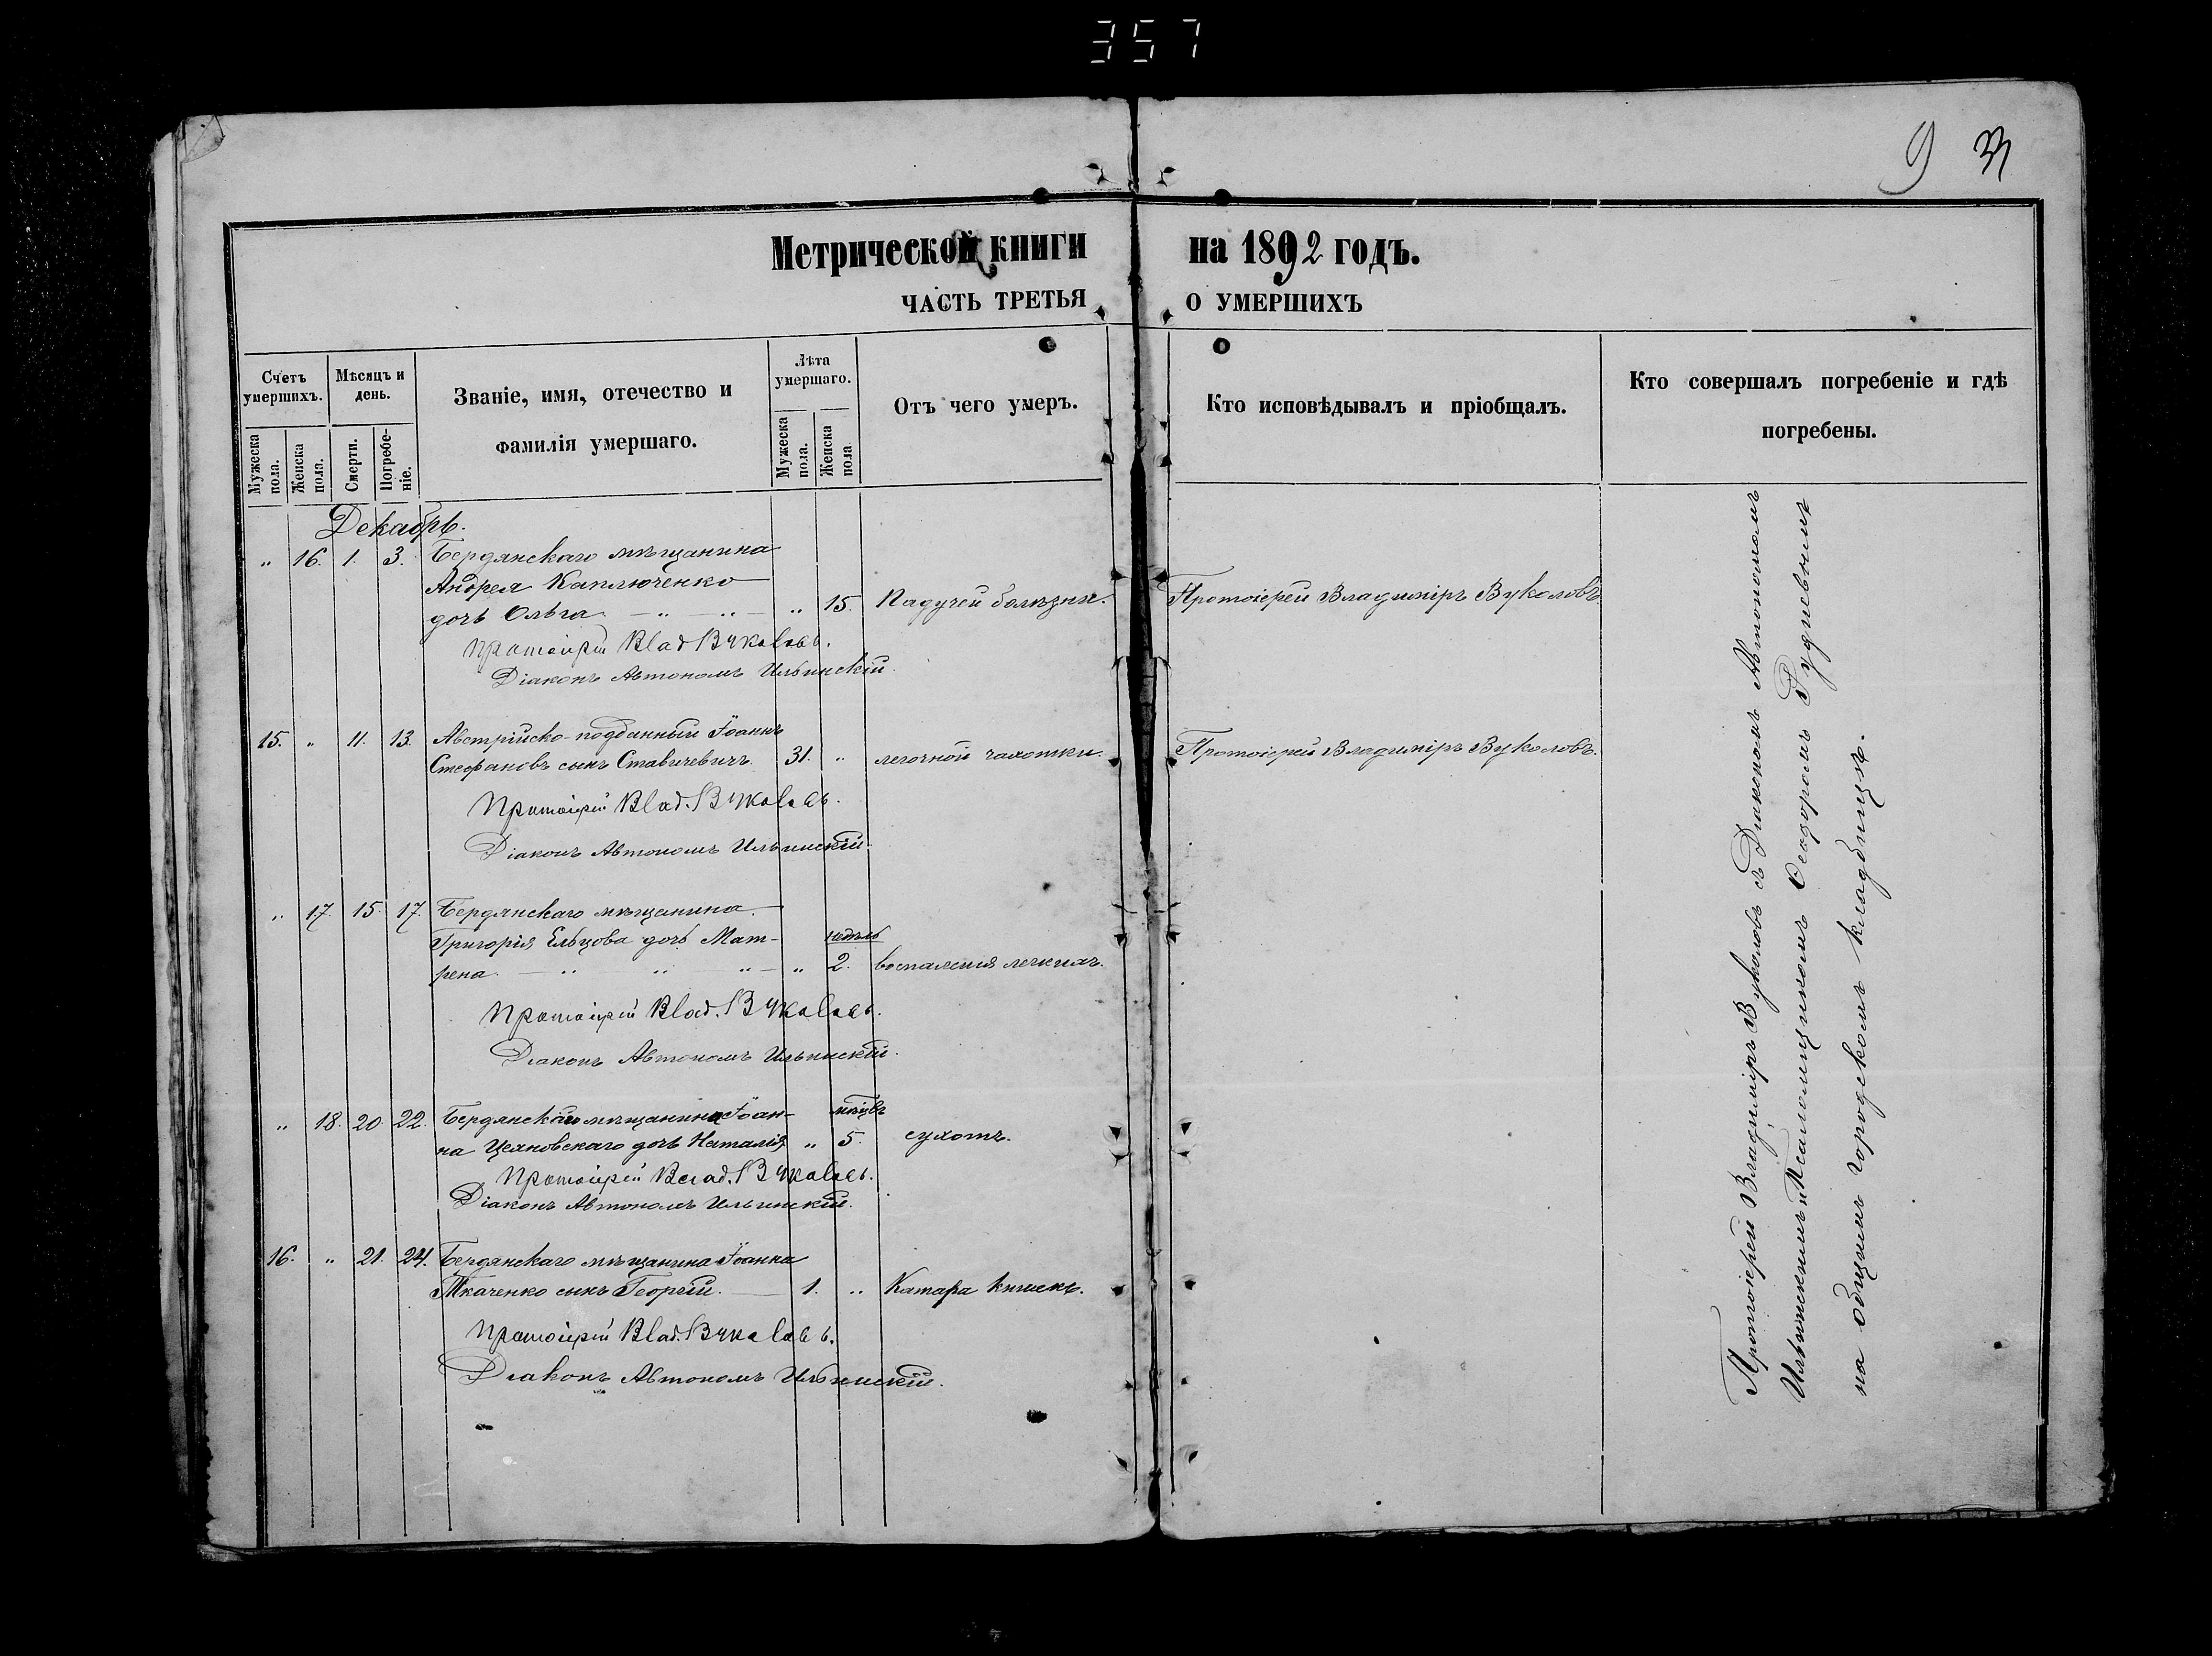 357
9
Метрической книги на 1892 годъ.
ЧАСТЬ ТРЕТЬЯ О УМЕРШИХЪ
Счетъ умершихъ.
Мѣсяцъ и день.
Званіе, имя, отечество и фамилія умершаго.
Лѣта умершаго.
Отъ чего умеръ.
Кто исповѣдывалъ и пріобщалъ.
Кто совершалъ погребеніе и гдѣ погребены.
Мужеска пола.
Женска пола.
Смерти.
Погребеніе.
Мужеска пола.
Женска пола
Декабрь.
„ 16. 1. 3. Бердянскаго мѣщанина
Андрея Каплюченко
дочь Ольга — „ „ — „ 15. Падучей болѣзни. Протоіерей Владиміръ Вуколовъ
Протоіерей Влад Вуколовъ.
Діаконъ Автономъ Ильинскій.
15. „ 11. 13. Австрійско-подданный Іоаннъ
Стефановъ сынъ Ставичевичъ 31. „ легочной чахотки. Протоіерей Владиміръ Вуколовъ.
Протоіерей Влад. Вуколовъ.
Діаконъ Автономъ Ильинскій.
„ 17. 15. 17. Бердянскаго мѣщанина
Григорія Ельцова дочь Мат- недѣль
рена — „ „ „ — „ 2. воспаленія легкихъ.
Протоіерей Влад. Вуколовъ.
Діаконъ Автономъ Ильинскій.
„ 18. 20. 22. Бердянскаго мѣщанина Іоан- мѣсцвъ
на Цехновскаго дочь Наталія „ 5. сухотъ.
Протоіерей Влад. Вуколовъ.
Діаконъ Автономъ Ильинскій.
16. „ 21. 24. Бердянскаго мѣщанина Іоанна
Ткаченко сынъ Георгій. — 1. „ Катара кишекъ.
Протоіерей Влад. Вуколовъ.
Діаконъ Автономъ Ильинскій.
Протоіерей Владиміръ Вуколовъ съ Діакономъ Автономомъ
Ильинскимъ и Псаломщикомъ Ѳеодоромъ Рудневымъ
на общемъ городскомъ кладбищѣ.